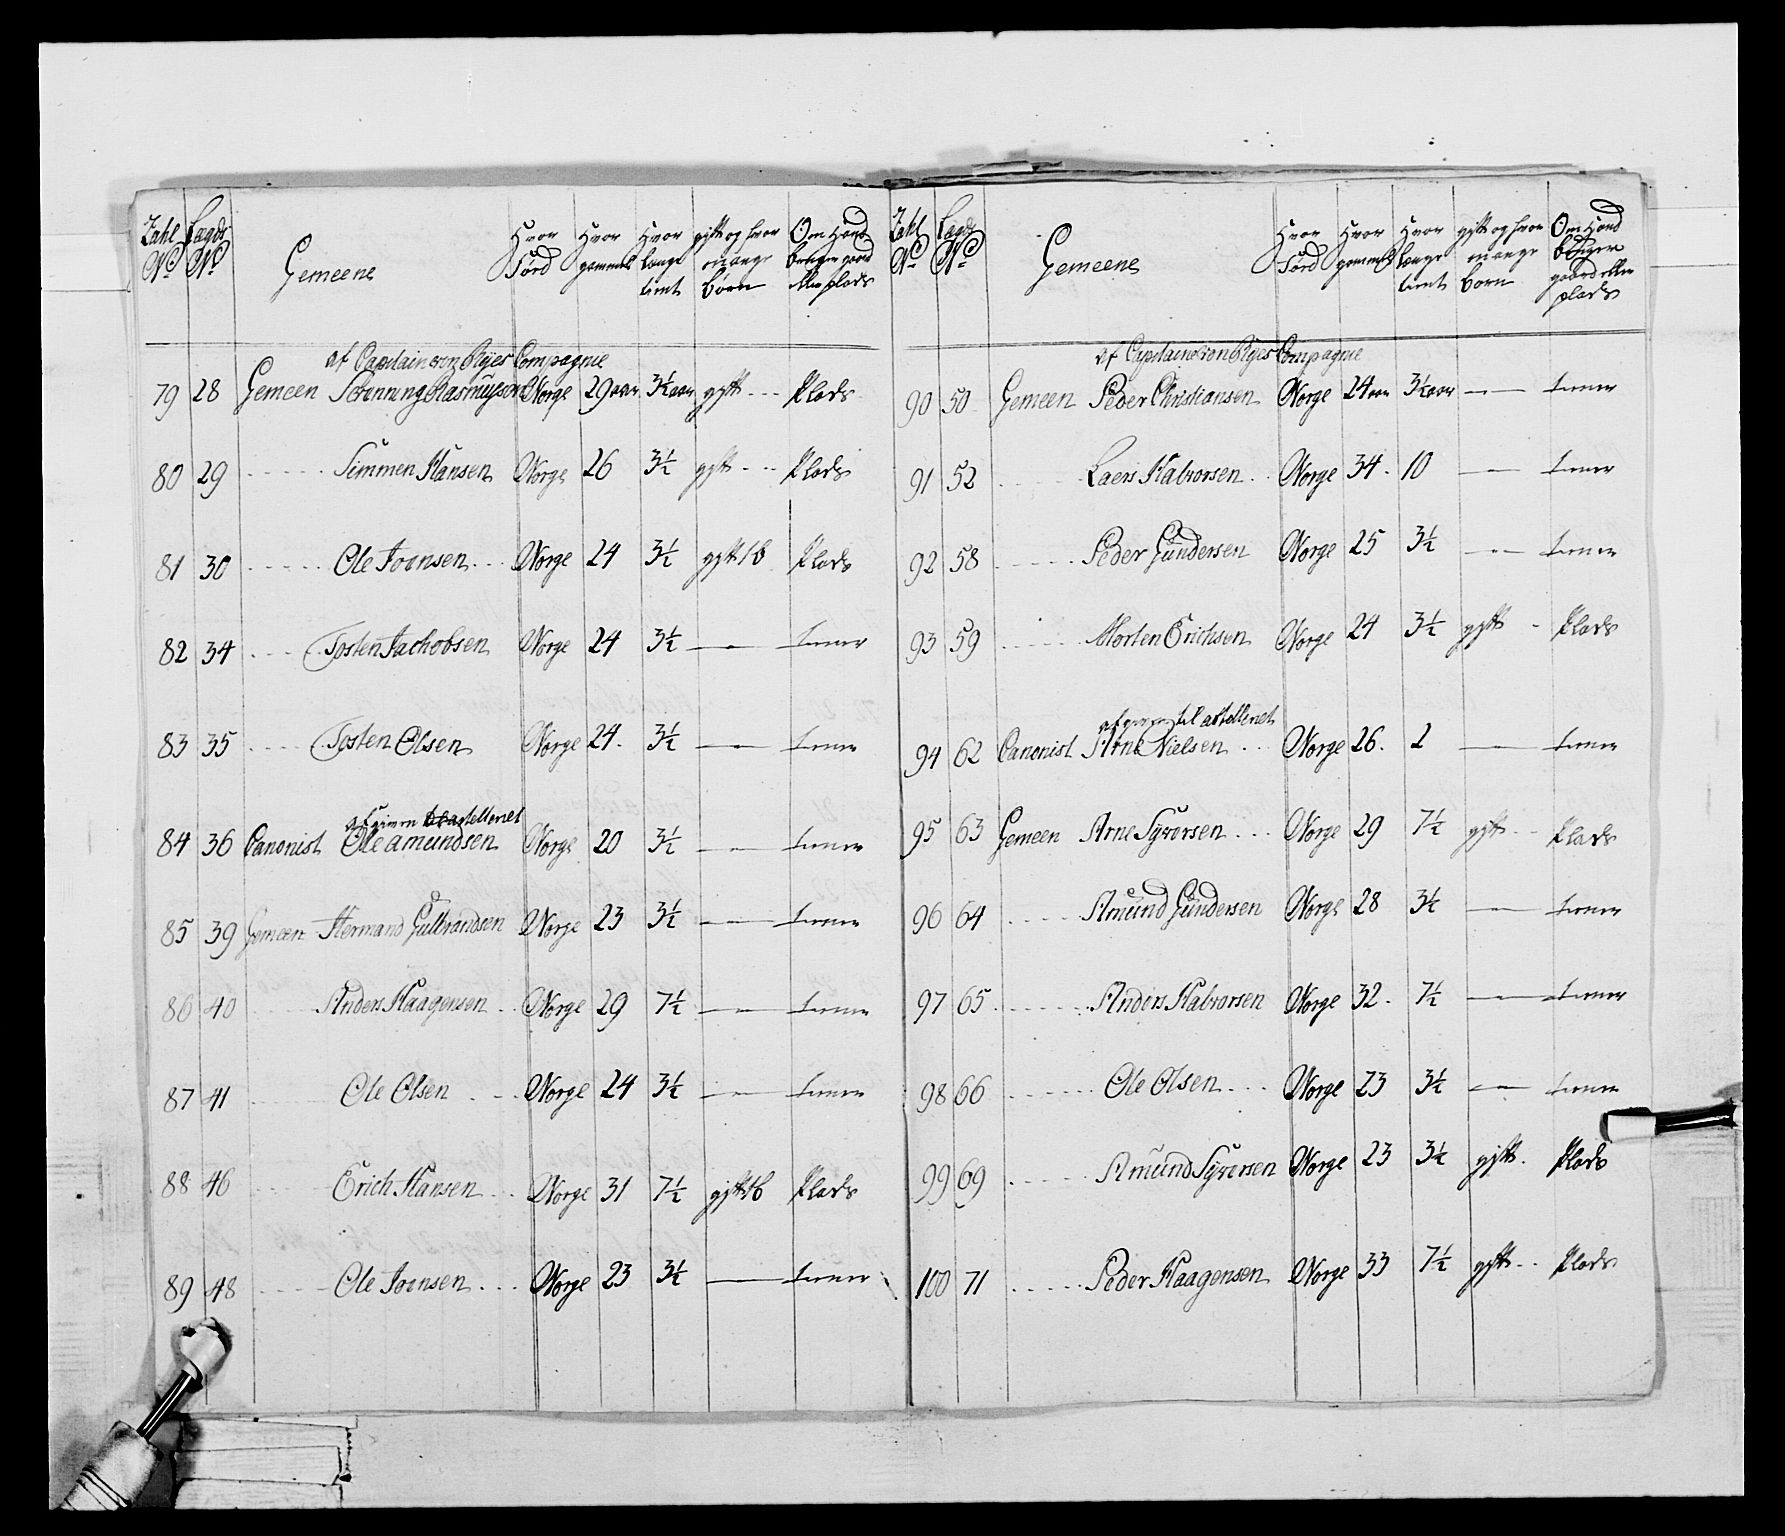 Zahl No Lægds No Gemeene Hvor Föed Hvor gammel Hvor længe tient gift og hvor mange börn Om Hand bruger gaard eller plads
af Capitain von Ryes Compagnie
79 28 Gemeen Rasmusen Norge 29 aar 3½ aar gift --- Plads
80 29 ----- Simmen Hansen Norge 26 3½ gift --- Plads
81 30 ----- Ole Joensen --- Norge 24 3½ gift 1 b Plads
82 34 ---- Tosten Jachobsen Norge 24 3½ ——
83 35 ---- Tosten Olsen Norge 24. 3½ ——
84 36 Canonist Ole Amundsen Norge 20 3½ ——
85 39 Gemeen Hermand Gulbrandsen Norge 23 3½ ——
86 40 ---- Anders Haagensen -- Norge 29 7½ ——
87 41 ---- Ole Olsen --- Norge 24 3½ ——
88 46 ---- Erich Hansen --- Norge 31 7½ gift 1 b Plads
89 48 ---- Ole Joensen --- Norge 23 3½ ——
Zahl No Lægds No Gemeene Hvor Föed Hvor gammel Hvor længe tient gift og hvor mange born Om Hand bruger gaard eller plads
af Capitain von Ryes Compagnie
90 50 Gemeen Peder Christiansen Norge 24 aar 3½ aar ——
91 52 ----- Laers Halvorsen -- Norge 34. 10 ——
92 58 ----- Peder Gundersen Norge 25 3½ ——
93 59 ----- Morten Erichsen Norge 24 3½ gift - Plads
94 62 Canonist Arne Nielsen --- Norge 26. 2 ——
95 63 Gemeen Arne Syversen --- Norge 29 7½ gift -- Plads
96 64 ---- Amund Gundersen Norge 28 3½ ——
97 65 ------ Anders Halvorsen Norge 32. 7½ ——
98 66 ----- Ole Olsen --- Norge 23 3½ ——
99 69 ----- Amund Syversen Norge 23 3½ gift. Plads
100 71 ----- Peder Haagensen Norge 33 7½ gift -- Plads